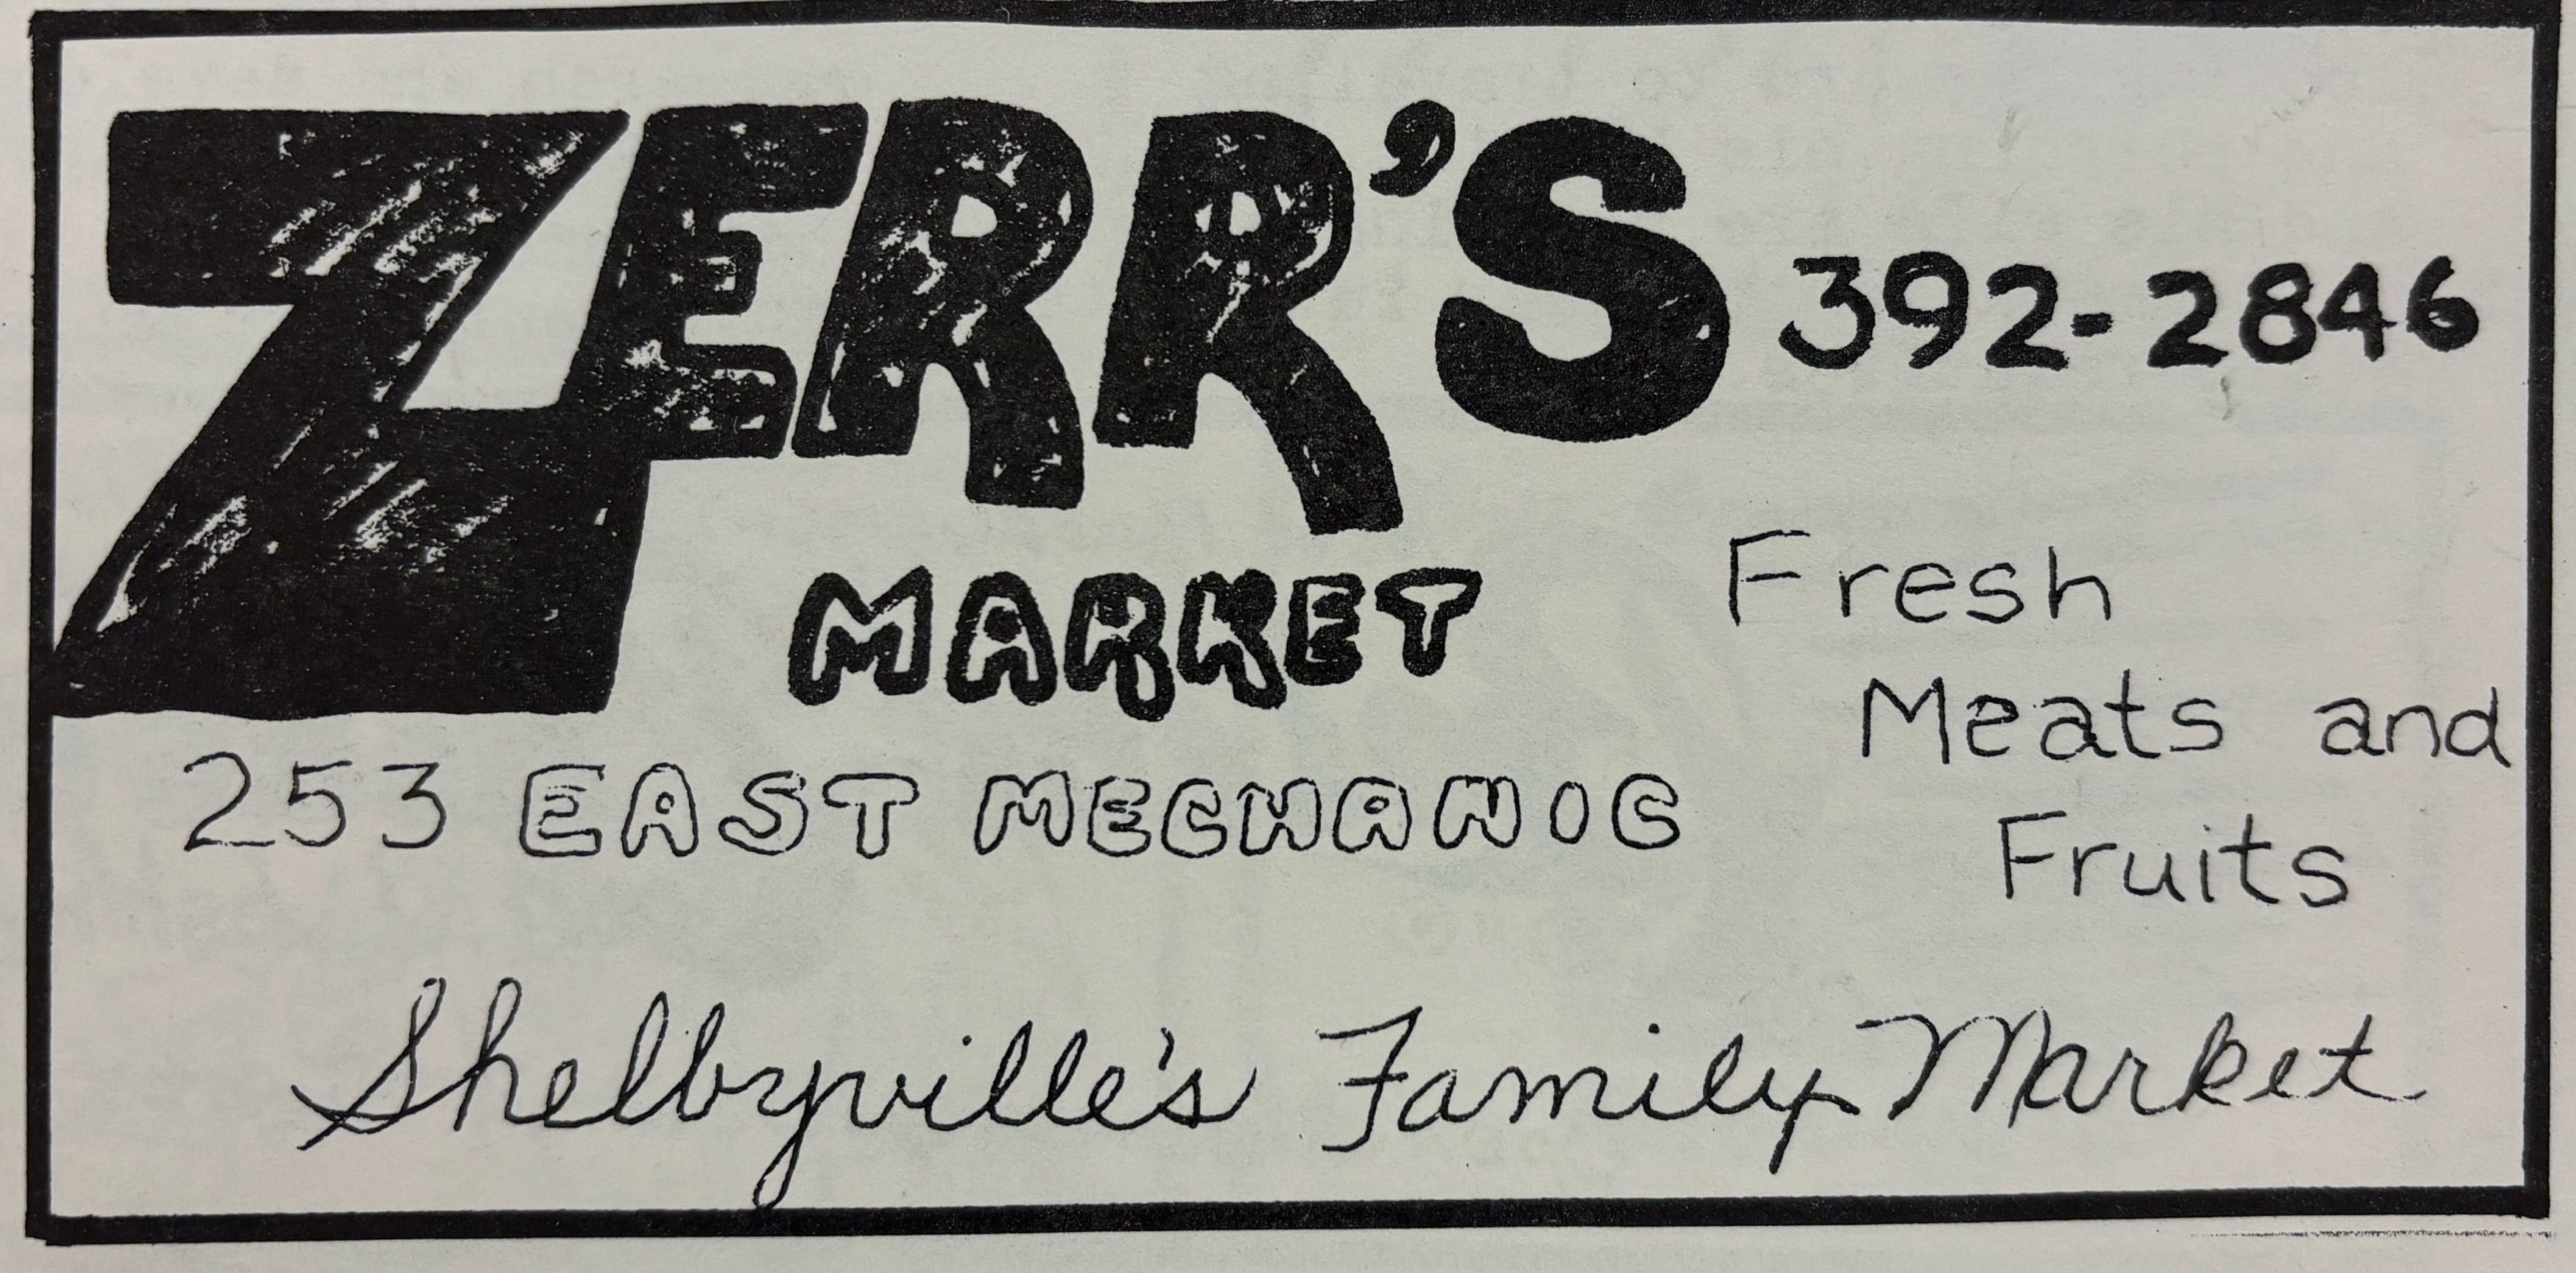 ZERR'S
392-2846
MARKET
253 EAST MECHANIC
Fresh
Meats and
Fruits
Shelbyville's Family Market